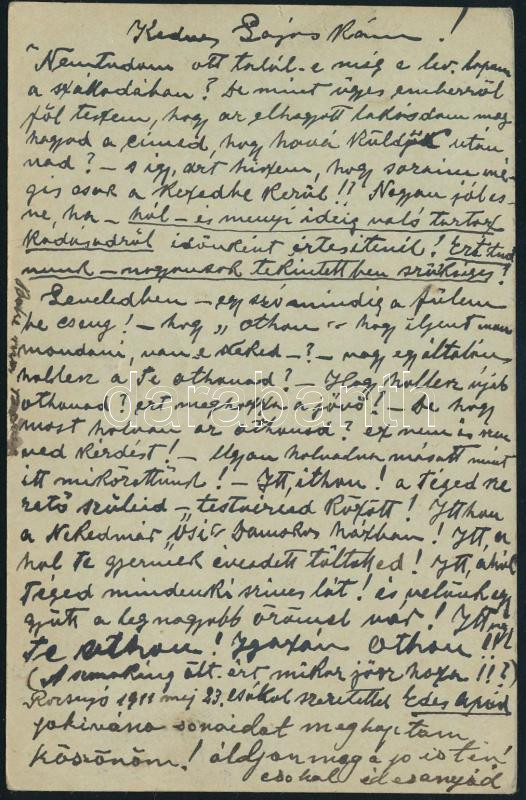 Kedves Lajos kám!
Nemtudom ott talál-e még e lev. lapom
a szállodában? De mint ügyes emberről
föl teszem, hogy az elhagyott lakásodon meg
hagyod a címed, hogy hová küldjék után
nad? – s így, azt hiszem, hogy soraim mé-
gis csak a kezedbe kerül!! Nagyon jól es-
ne, ha – hól – és mennyi ideig való tartoz
kodásodról időnként értesitenél! Ezt tud
nunk – nagyonsok tekintetben szükséges!
Leveledben – egy szó mindig a fülem
be cseng! – hogy „othon" – hogy ilyent
mondani, van-e neked –? – vagy egyáltalán
hol lesz a te othonod? – Hogy hol lesz újab
othonod? ezt meghozza a jövő! – De hogy
most hol van az othonod? ez nem is
ked kérdést! – Ugyan hol volna másutt mint
itt miközöttünk! – Itt, ithon! a téged sze
rető szüleid – testvéreid között! Itthon
a Nekedmár „Ősi" Damokos házban! Itt, a
hol te gyermek éveidet töltötted! Itt, ahol
téged mindenki szives lát! és velünk egy
gyütt a legnagyobb örömmel vár! Itt
te othon! Igazán othon!!!
(A smoking ált. ért mikor jösz haza!!?)
Rozsnyó 1911 máj 23. csókol szeretettel Édes apád
jokivánó soraidat megkaptam
köszönöm! áldjon meg a jó isten!
csokol édesanyád
darabanth